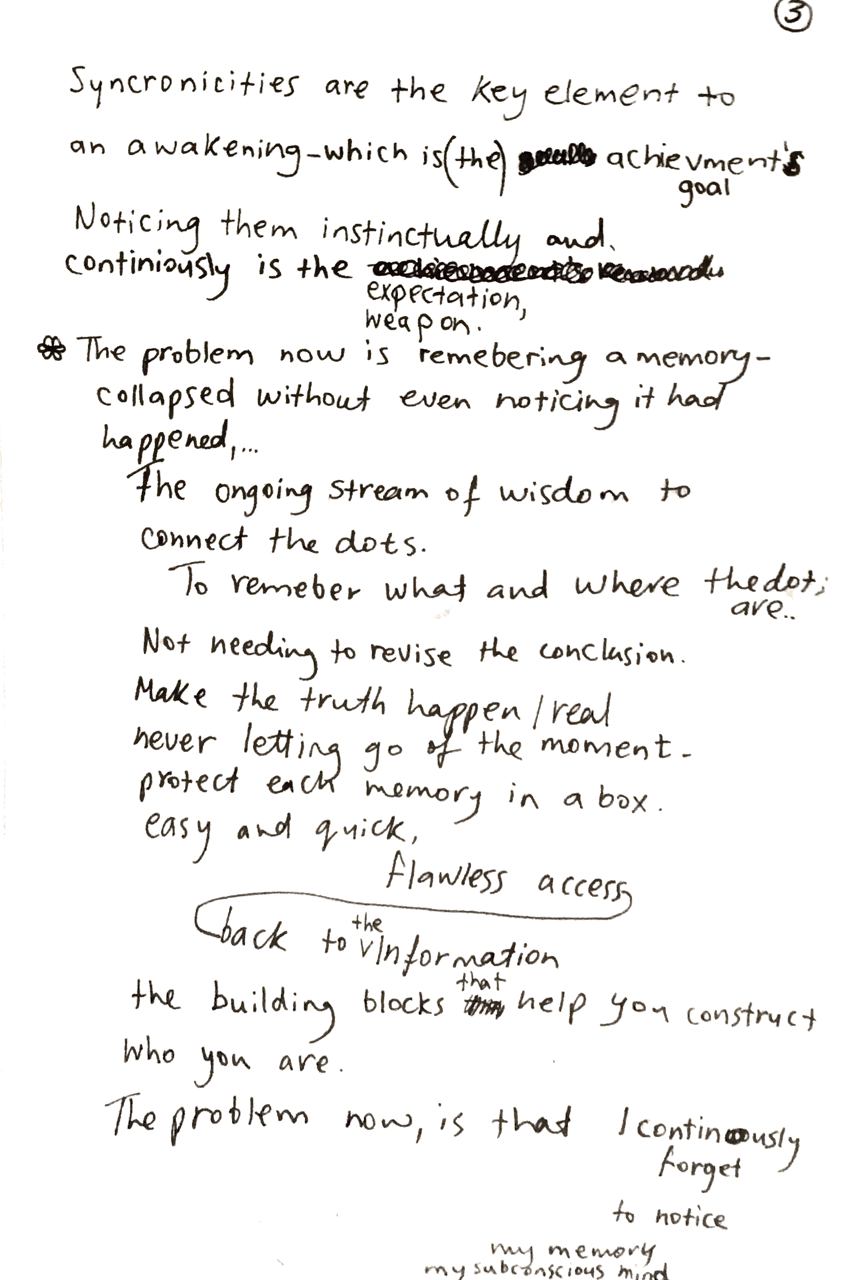 3
Syncronicities are the key element to
an awakening-which is (the) achievment's
goal
Noticing them instinctually and
continiously is the
expectation,
weapon.
The problem now is remebering a memory-
collapsed without even noticing it had
happened,...
The ongoing stream of wisdom to
connect the dots.
To remeber what and where the dots
are..
Not needing to revise the conclusion.
Make the truth happen/real
never letting go of the moment-
protect each memory in a box.
easy and quick,
flawless access
back to the Information
the building blocks that help you construct
who you are.
The problem now, is that I continously
forget
to notice
my memory
my subconscious mind